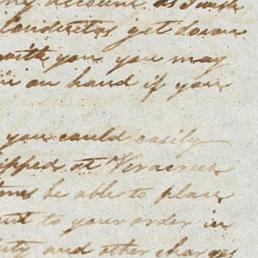 my account as I wish
get down
with you you may
on hand if you
you could easily
shipped at Veracruz
times be able to place
to your order in
and other charges